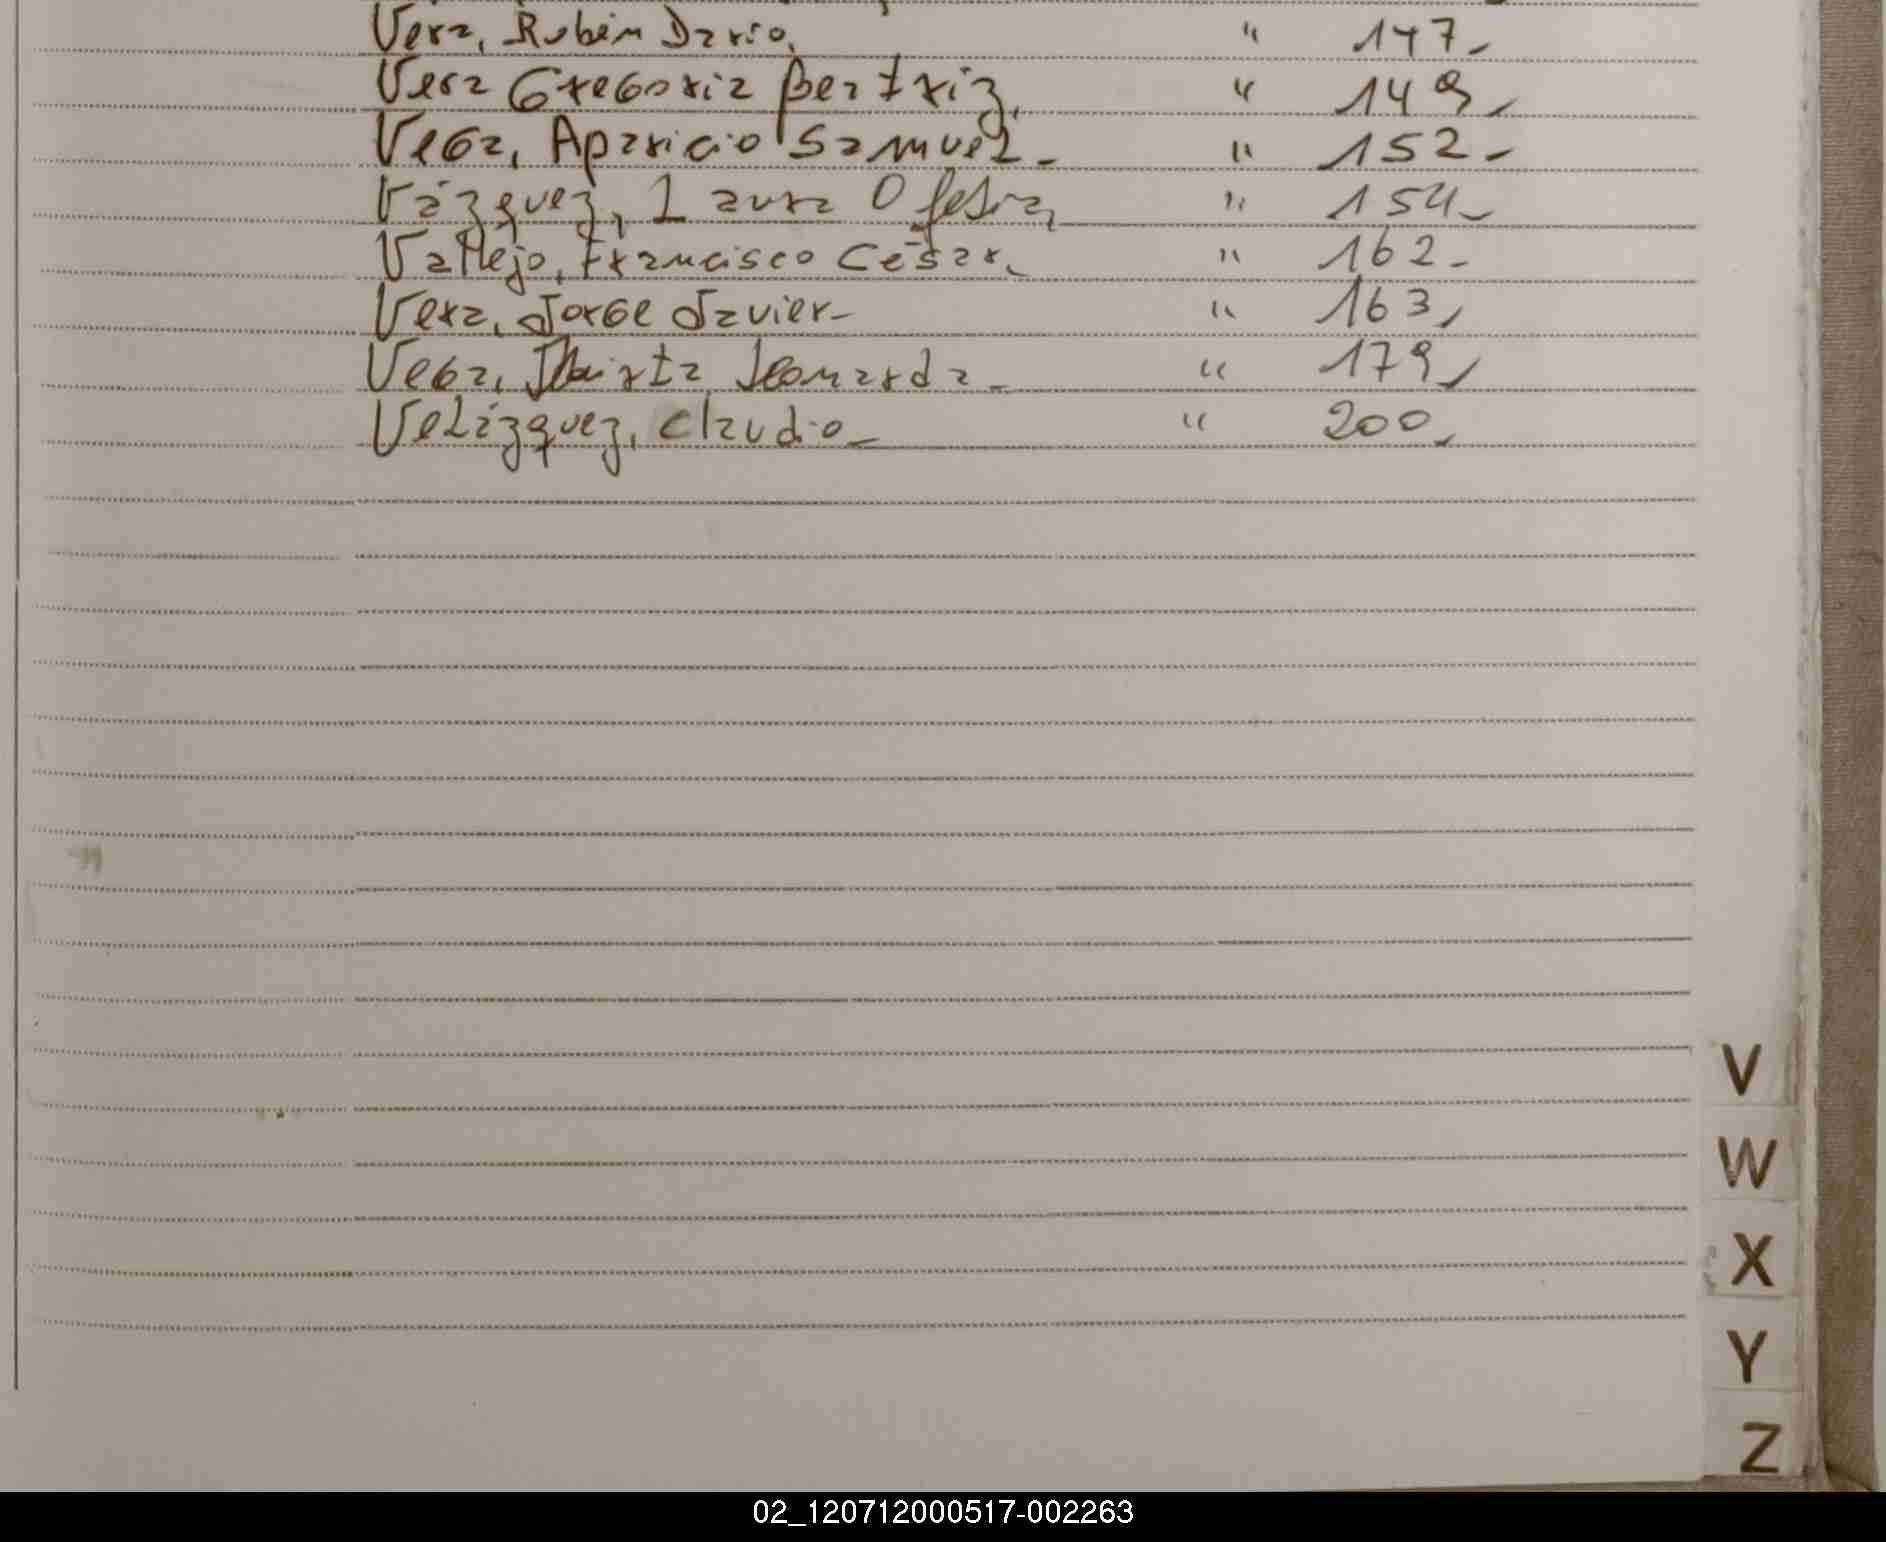 Vera, Rubén Darío, " 147-
Vera Gregoria Beatriz, " 149-
Vega, Aparicio Samuel- " 152-
Vázquez, Laura Ofelia, " 154-
Vallejo, Francisco César- " 162-
Vera, Jorge Javier- " 163-
Vega, Mirta Leonarda- " 179-
Velázquez, Claudio- " 200-
V
W
X
Y
Z
02_120712000517-002263